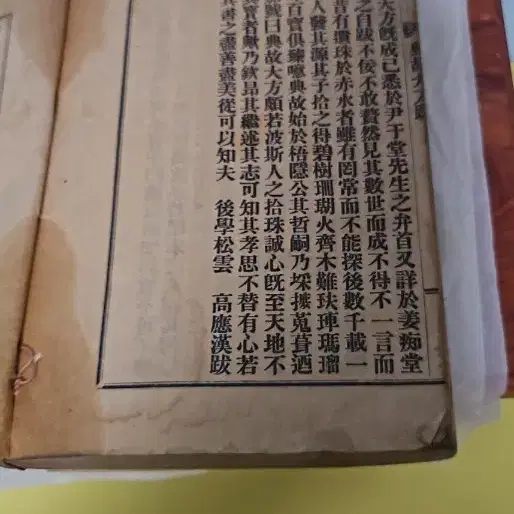 典故大方跋
大方旣成已悉於尹于堂先生之弁首又詳於姜痴堂
之自跋不佞不敢贅然見其數世而成不得不一言而
昔有撒珠於赤水者雖有罔常而不能探後數千載一
人發其源其子拾之得碧樹珊瑚火齊木難玞琿瑪瑠
百寶俱臻噫典故始於梧隱公其哲嗣乃採摭蒐葺洒
號曰典故大方頗若波斯人之拾珠誠心旣至天地不
寶者歟乃欽昂其繼述其志可知其孝思不替有心若
書之盡善盡美從可以知夫 後學松雲 高應漢跋